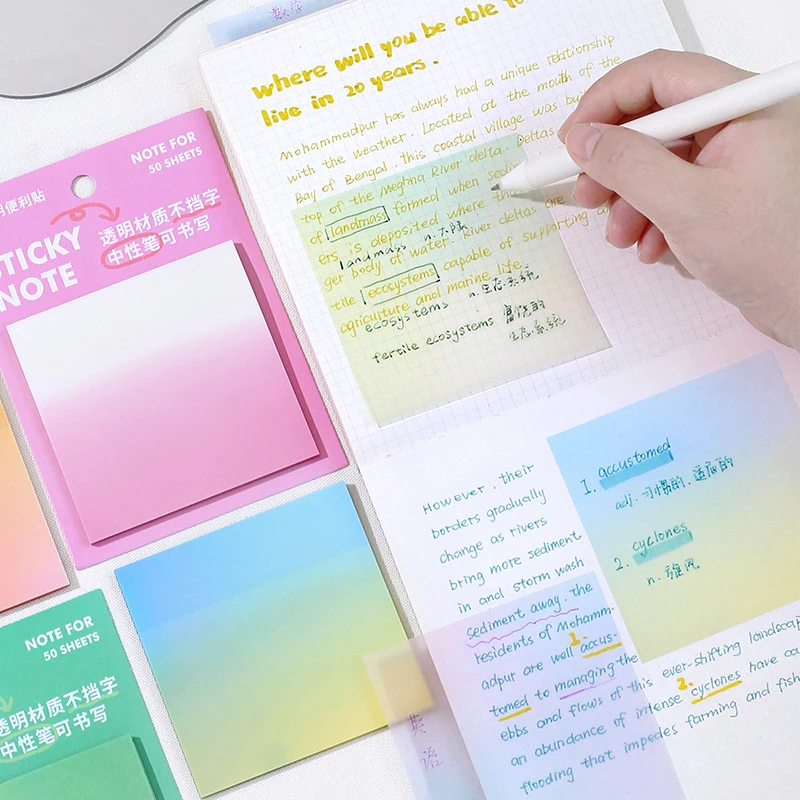 数学
where will you be able to
live in 20 years.
Mohammadpur has always had a unique relationship
with the weather. Located at the mouth of the
Bay of Bengal, this coastal village was
top of the Meghna River delta. Deltas
of landmass formed when
landmass n.大陆
ers is deposited where
ger body of water. River deltas are
tile ecosystems capable of supporting
ecosystems n.生态系统
agriculture and marine life.
fertile ecosystems 富饶的
生态系统
NOTE FOR
50 SHEETS
明便利贴
TICKY
NOTE
透明材质不挡字
中性笔可书写
However, their
borders gradually
change as rivers
bring more sediment
in and storm wash
sediment away. the
residents of Mohamm-
adpur are well accus-
1.
tomed to managing the
ebbs and flows of this ever-shifting landscap
2.
an abundance of intense cyclones have
flooding that impedes farming and fish
1. accustomed
adj. 习惯的.适应的
2. cyclones
n. 旋风
英语
NOTE FOR
50 SHEETS
透明材质不挡字
中性笔可书写